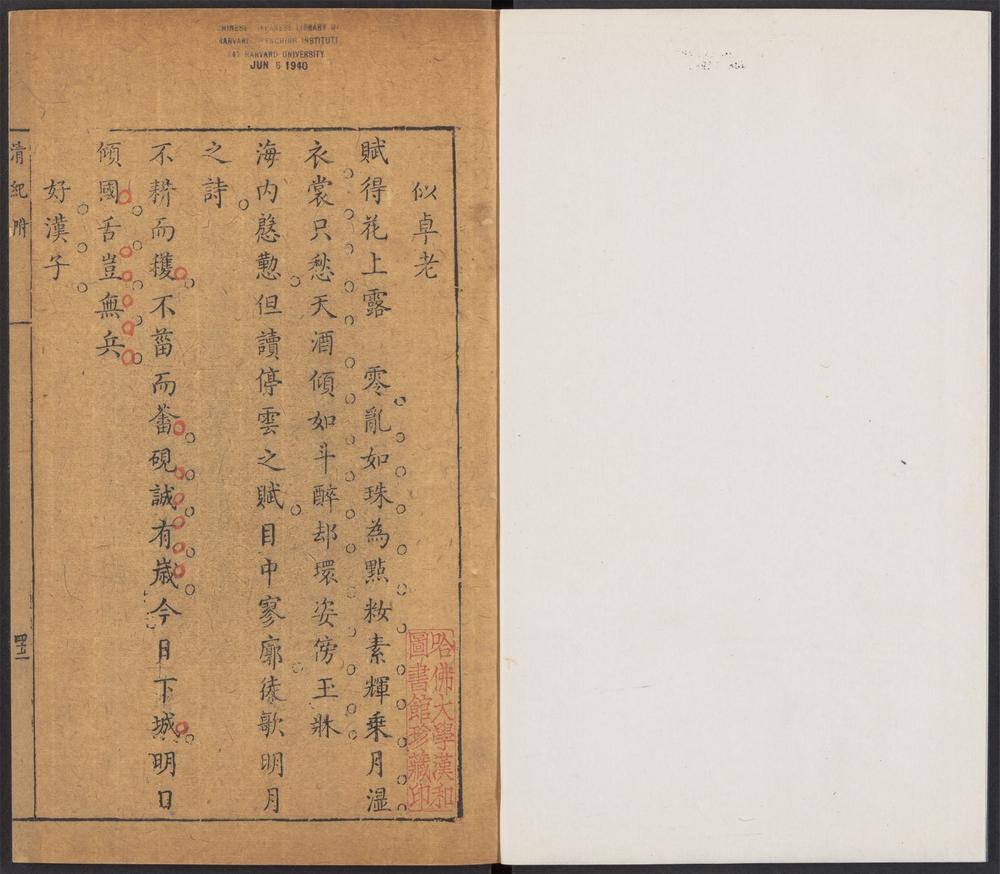 CHINESE JAPANESE LIBRARY OF
HARVARD YENCHING INSTITUTE
AT HARVARD UNIVERSITY
JUN 5 1940
似卓老
賦得花上露　零亂如珠為點妝素輝乗月溼
衣裳只愁天酒傾如斗醉却環姿傍玉牀
海内慇懃但讀停雲之賦目中寥廓徒歌明月
之詩
不耕而穫不菑而畬硯誠有歳今日下城明日
傾國舌豈無兵
好漢子
清紀
哈佛大學漢和
圖書館珍藏印